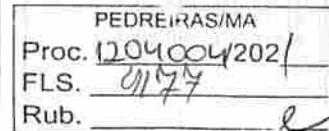 PEDREIRAS/MA
Proc. 1204004/2021
FLS. 4177
Rub.